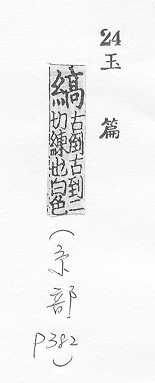 24
玉篇
縞古倒古到二
切練也白色
(糸部
P382)